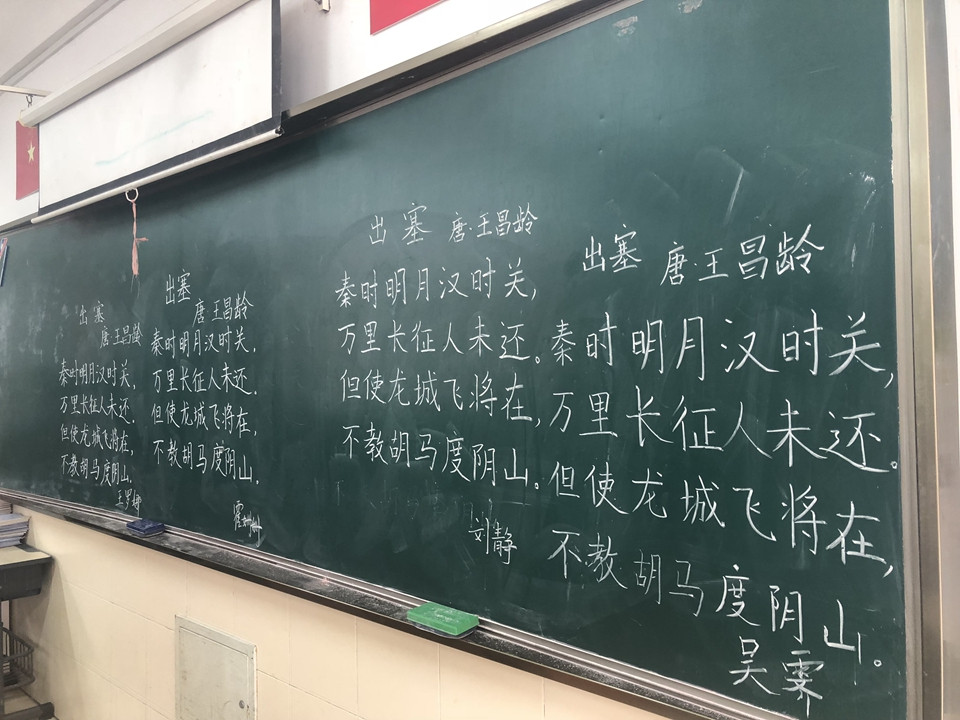 出塞
唐·王昌龄
秦时明月汉时关，
万里长征人未还。
但使龙城飞将在，
不教胡马度阴山。
王罗
出塞
唐·王昌龄
秦时明月汉时关，
万里长征人未还。
但使龙城飞将在，
不教胡马度阴山。
霍
出塞 唐·王昌龄
秦时明月汉时关，
万里长征人未还。
但使龙城飞将在，
不教胡马度阴山。
刘静
出塞 唐·王昌龄
秦时明月汉时关，
万里长征人未还。
但使龙城飞将在，
不教胡马度阴山。
吴霁